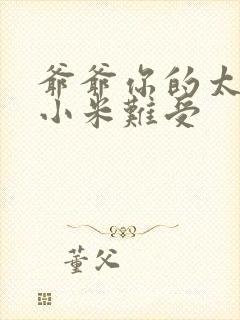 爺爺你的太
小米難受
董父